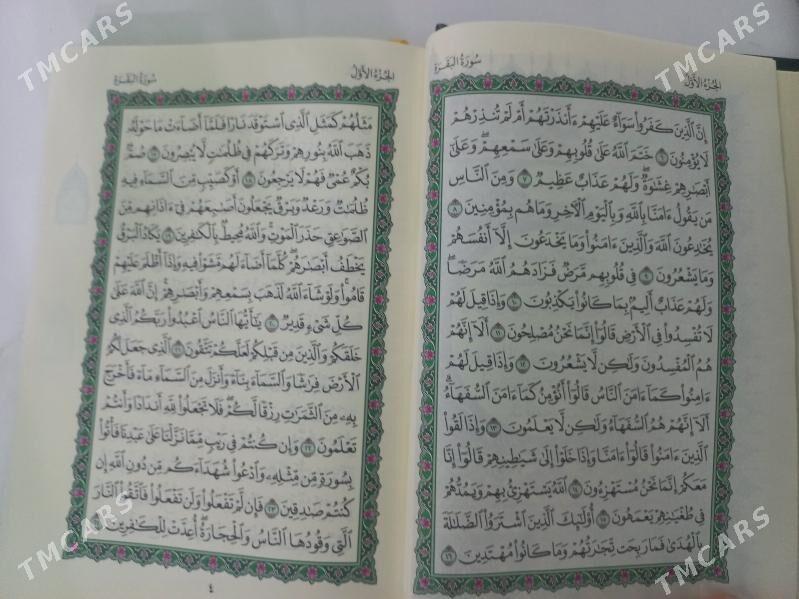 TMCARS
TMCARS
TMCARS
TMCARS
TMCARS
TMCARS
سُورَةُ البَقَرَةِ
الجُزْءُ الأَوَّلُ
إِنَّ الَّذِينَ كَفَرُوا سَوَاءٌ عَلَيْهِمْ ءَأَنذَرْتَهُمْ أَمْ لَمْ تُنذِرْهُمْ
لَا يُؤْمِنُونَ ٦ خَتَمَ اللَّهُ عَلَىٰ قُلُوبِهِمْ وَعَلَىٰ سَمْعِهِمْ ۖ وَعَلَىٰ
أَبْصَٰرِهِمْ غِشَٰوَةٌ ۖ وَلَهُمْ عَذَابٌ عَظِيمٌ ٧ وَمِنَ النَّاسِ
مَن يَقُولُ ءَامَنَّا بِاللَّهِ وَبِالْيَوْمِ الْآخِرِ وَمَا هُم بِمُؤْمِنِينَ ٨
يُخَٰدِعُونَ اللَّهَ وَالَّذِينَ ءَامَنُوا وَمَا يَخْدَعُونَ إِلَّا أَنفُسَهُمْ
وَمَا يَشْعُرُونَ ٩ فِي قُلُوبِهِم مَّرَضٌ فَزَادَهُمُ اللَّهُ مَرَضًا ۖ
وَلَهُمْ عَذَابٌ أَلِيمٌ بِمَا كَانُوا يَكْذِبُونَ ١٠ وَإِذَا قِيلَ لَهُمْ
لَا تُفْسِدُوا فِي الْأَرْضِ قَالُوا إِنَّمَا نَحْنُ مُصْلِحُونَ ١١ أَلَا إِنَّهُمْ
هُمُ الْمُفْسِدُونَ وَلَٰكِن لَّا يَشْعُرُونَ ١٢ وَإِذَا قِيلَ لَهُمْ
ءَامِنُوا كَمَا ءَامَنَ النَّاسُ قَالُوا أَنُؤْمِنُ كَمَا ءَامَنَ السُّفَهَاءُ ۗ
أَلَا إِنَّهُمْ هُمُ السُّفَهَاءُ وَلَٰكِن لَّا يَعْلَمُونَ ١٣ وَإِذَا لَقُوا
الَّذِينَ ءَامَنُوا قَالُوا ءَامَنَّا وَإِذَا خَلَوْا إِلَىٰ شَيَٰطِينِهِمْ قَالُوا إِنَّا
مَعَكُمْ إِنَّمَا نَحْنُ مُسْتَهْزِءُونَ ١٤ اللَّهُ يَسْتَهْزِئُ بِهِمْ وَيَمُدُّهُمْ
فِي طُغْيَٰنِهِمْ يَعْمَهُونَ ١٥ أُولَٰئِكَ الَّذِينَ اشْتَرَوُا الضَّلَٰلَةَ
بِالْهُدَىٰ فَمَا رَبِحَت تِّجَٰرَتُهُمْ وَمَا كَانُوا مُهْتَدِينَ ١٦
الجُزْءُ الأَوَّلُ
سُورَةُ البَقَرَةِ
مَثَلُهُمْ كَمَثَلِ الَّذِي اسْتَوْقَدَ نَارًا فَلَمَّا أَضَاءَتْ مَا حَوْلَهُ
ذَهَبَ اللَّهُ بِنُورِهِمْ وَتَرَكَهُمْ فِي ظُلُمَٰتٍ لَّا يُبْصِرُونَ ١٧ صُمٌّ
بُكْمٌ عُمْيٌ فَهُمْ لَا يَرْجِعُونَ ١٨ أَوْ كَصَيِّبٍ مِّنَ السَّمَاءِ فِيهِ
ظُلُمَٰتٌ وَرَعْدٌ وَبَرْقٌ يَجْعَلُونَ أَصَٰبِعَهُمْ فِي ءَاذَانِهِم مِّنَ
الصَّوَٰعِقِ حَذَرَ الْمَوْتِ ۚ وَاللَّهُ مُحِيطٌ بِالْكَٰفِرِينَ ١٩ يَكَادُ الْبَرْقُ
يَخْطَفُ أَبْصَٰرَهُمْ ۖ كُلَّمَا أَضَاءَ لَهُم مَّشَوْا فِيهِ وَإِذَا أَظْلَمَ عَلَيْهِمْ
قَامُوا ۚ وَلَوْ شَاءَ اللَّهُ لَذَهَبَ بِسَمْعِهِمْ وَأَبْصَٰرِهِمْ ۚ إِنَّ اللَّهَ عَلَىٰ
كُلِّ شَيْءٍ قَدِيرٌ ٢٠ يَٰأَيُّهَا النَّاسُ اعْبُدُوا رَبَّكُمُ الَّذِي
خَلَقَكُمْ وَالَّذِينَ مِن قَبْلِكُمْ لَعَلَّكُمْ تَتَّقُونَ ٢١ الَّذِي جَعَلَ لَكُمُ
الْأَرْضَ فِرَٰشًا وَالسَّمَاءَ بِنَاءً وَأَنزَلَ مِنَ السَّمَاءِ مَاءً فَأَخْرَجَ
بِهِ مِنَ الثَّمَرَٰتِ رِزْقًا لَّكُمْ ۖ فَلَا تَجْعَلُوا لِلَّهِ أَندَادًا وَأَنتُمْ
تَعْلَمُونَ ٢٢ وَإِن كُنتُمْ فِي رَيْبٍ مِّمَّا نَزَّلْنَا عَلَىٰ عَبْدِنَا فَأْتُوا
بِسُورَةٍ مِّن مِّثْلِهِ وَادْعُوا شُهَدَاءَكُم مِّن دُونِ اللَّهِ إِن
كُنتُمْ صَٰدِقِينَ ٢٣ فَإِن لَّمْ تَفْعَلُوا وَلَن تَفْعَلُوا فَاتَّقُوا النَّارَ
الَّتِي وَقُودُهَا النَّاسُ وَالْحِجَارَةُ ۖ أُعِدَّتْ لِلْكَٰفِرِينَ
٤